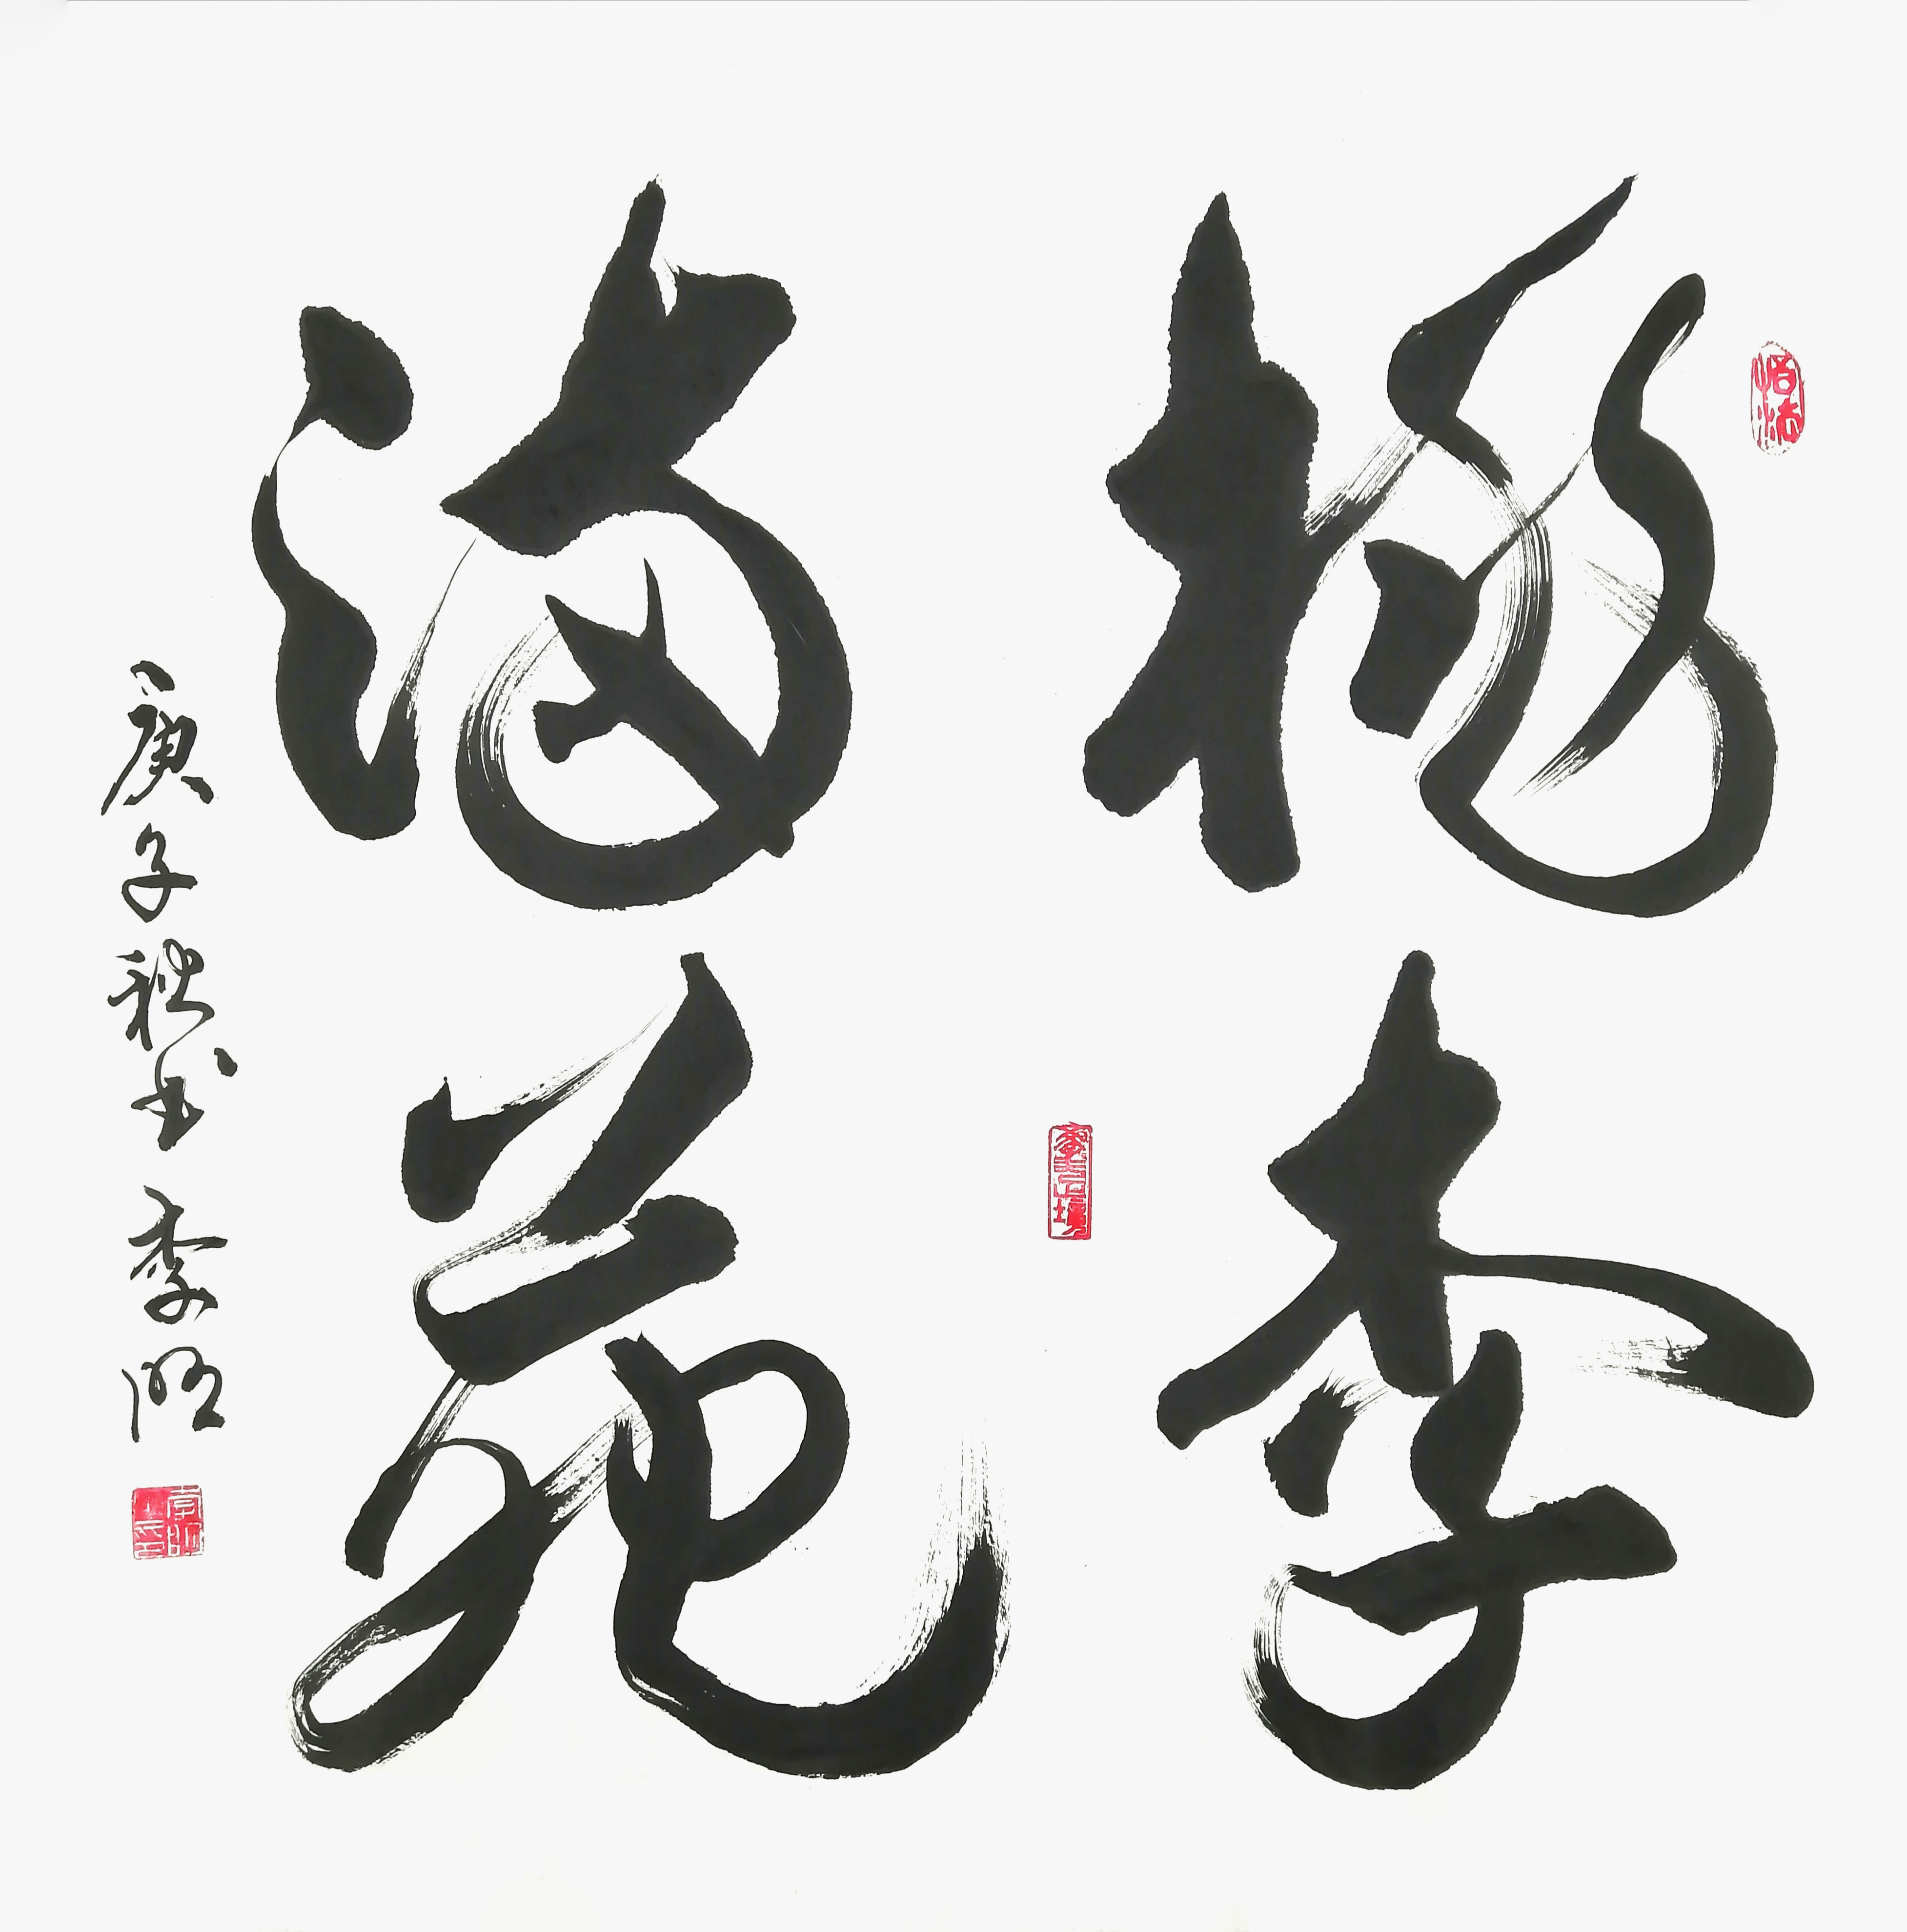 桃李
满苑
庚子秋书 李明